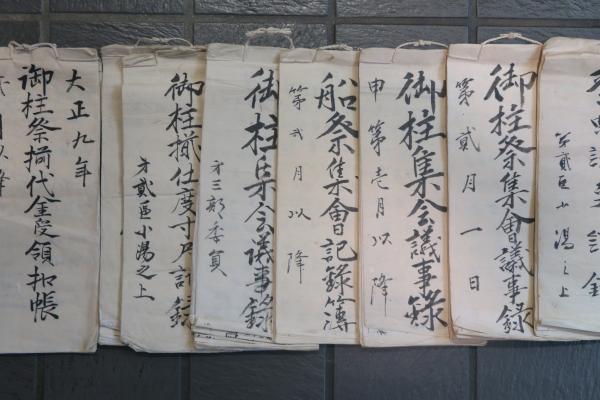 第貳区小湯之上
御柱祭集會議事録
第貳月一日
御柱集会議事録
申第壱月以降
船祭集會記録簿
第弐月以降
御柱集会議事録
第三部委員
御柱揃仕度寸尺記録
第貳區小湯之上
大正九年
御柱祭揃代金受領扣帳